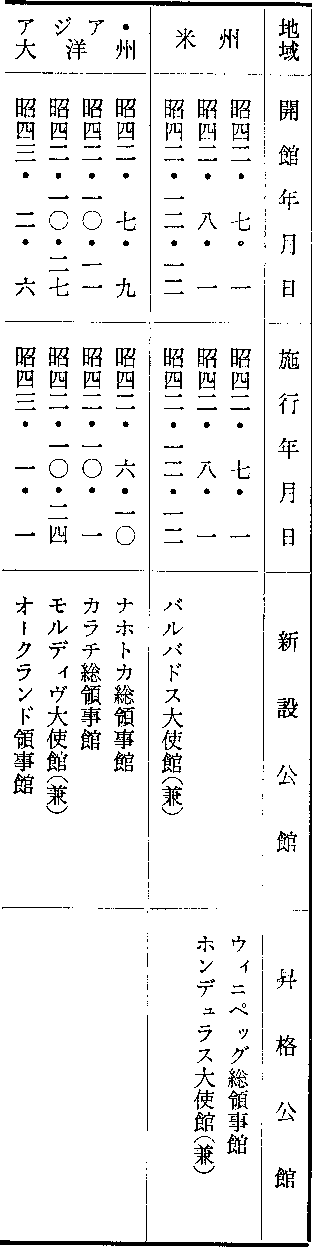 地域 開館年月日 施行年月日 新設公館 升格公館
米州
昭四二・七・一 昭四二・七・一 ウィニペッグ総領事館
昭四二・八・一 昭四二・八・一 ホンデュラス大使館(兼)
昭四二・一二・一二 昭四二・一二・一二 バルバドス大使館(兼)
アジア・大洋州
昭四二・七・九 昭四二・六・一〇 ナホトカ総領事館
昭四二・一〇・一一 昭四二・一〇・一 カラチ総領事館
昭四二・一〇・二七 昭四二・一〇・二四 モルディヴ大使館(兼)
昭四三・二・六 昭四三・一・一 オークランド領事館